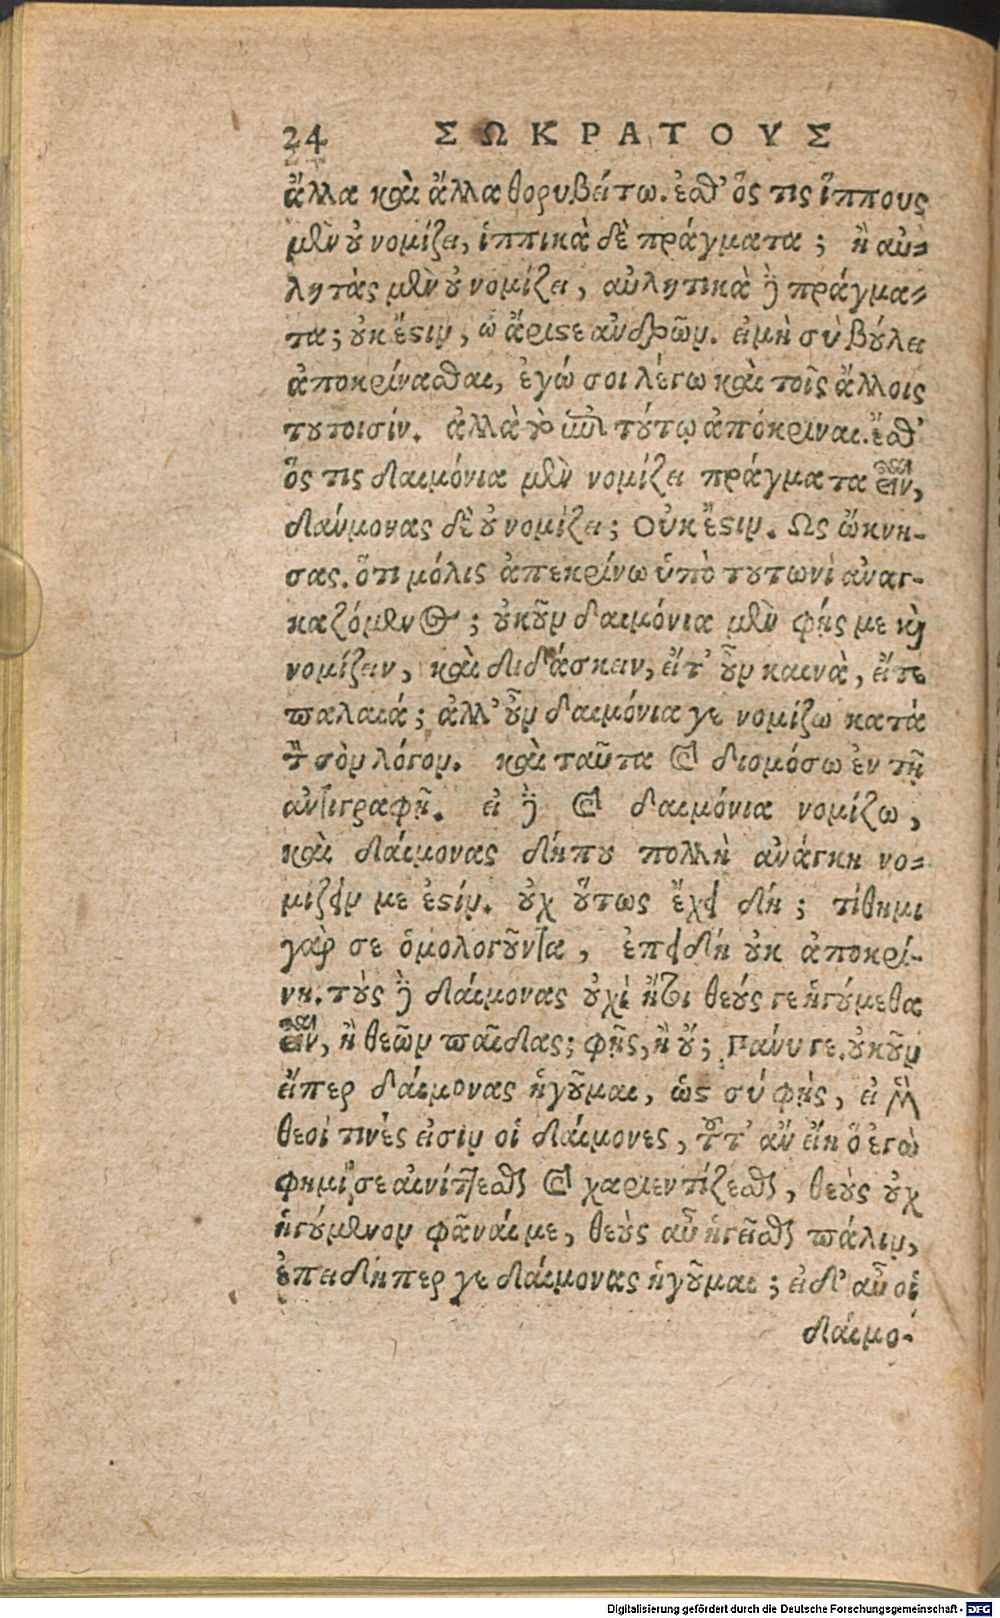 24 ΣΩΚΡΑΤΟΥΣ
ἄλλα καὶ ἄλλα θορυβείτω. ἐσθ' ὅς τις ἵππους
μὲν οὐ νομίζει, ἱππικὰ δὲ πράγματα; ἢ αὐ-
λητὰς μὲν οὐ νομίζει, αὐλητικὰ δὲ πράγμα-
τα; οὐκ ἔστιν, ὦ ἄριστε ἀνδρῶν. εἰ μὴ σὺ βούλει
ἀποκρίνασθαι, ἐγώ σοι λέγω καὶ τοῖς ἄλλοις
τουτοισίν. ἀλλὰ τὸ ἐπὶ τούτῳ ἀπόκριναι. ἔσθ'
ὅς τις δαιμόνια μὲν νομίζει πράγματα εἶναι,
δαίμονας δὲ οὐ νομίζει; Οὐκ ἔστιν. Ως ὤκνη-
σας. ὅτι μόλις ἀπεκρίνω ὑπὸ τουτωνὶ ἀναγ-
καζόμενος; οὐκοῦν δαιμόνια μὲν φῄς με καὶ
νομίζειν, καὶ διδάσκειν, εἴτ' οὖν καινὰ, εἴτε
παλαιά; ἀλλ' οὖν δαιμόνιά γε νομίζω κατὰ
τὸν σὸν λόγον. καὶ ταῦτα καὶ διομόσω ἐν τῇ
ἀντιγραφῇ. εἰ δὲ καὶ δαιμόνια νομίζω,
καὶ δαίμονας δήπου πολλὴ ἀνάγκη νο-
μίζειν με ἐστίν. οὐχ οὕτως ἔχει δή; τίθημι
γάρ σε ὁμολογοῦντα, ἐπειδὴ οὐκ ἀποκρί-
νῃ. τοὺς δὲ δαίμονας οὐχὶ ἤτοι θεούς γε ἡγούμεθα
εἶναι, ἢ θεῶν παῖδας; φῂς, ἢ οὔ; Πάνυ γε. οὐκοῦν
εἴπερ δαίμονας ἡγοῦμαι, ὡς σύ φῂς, εἰ μὲν
θεοί τινές εἰσιν οἱ δαίμονες, τοῦτ' ἂν εἴη ὅ ἐγὼ
φημί σε αἰνίττεσθαι καὶ χαριεντίζεσθαι, θεοὺς οὐχ
ἡγούμενον φᾶναί με, θεοὺς αὖ ἡγεῖσθαι πάλιν,
ἐπειδήπερ γε δαίμονας ἡγοῦμαι; εἰ δ' αὖ οἱ
δαίμο-
Digitalisierung gefördert durch die Deutsche Forschungsgemeinschaft - DFG